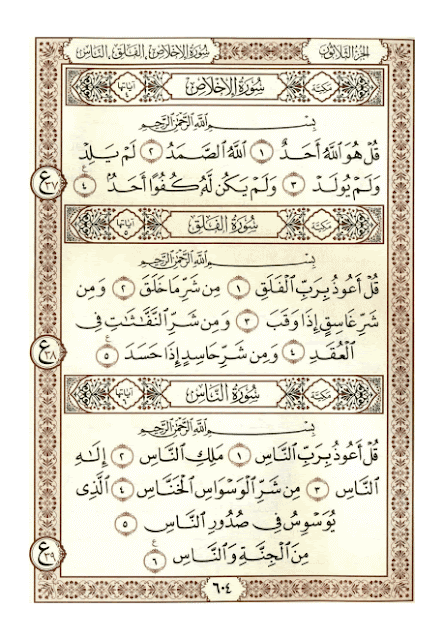 الجزء الثلاثون
سورة الإخلاص، الفلق، الناس
مكية سُورَةُ الإِخْلَاصِ آياتها ٤
بِسْمِ اللَّهِ الرَّحْمَٰنِ الرَّحِيمِ
قُلْ هُوَ اللَّهُ أَحَدٌ ١ اللَّهُ الصَّمَدُ ٢ لَمْ يَلِدْ
وَلَمْ يُولَدْ ٣ وَلَمْ يَكُن لَّهُ كُفُوًا أَحَدٌ ٤
ع ٣٧
مكية سُورَةُ الفَلَقِ آياتها ٥
بِسْمِ اللَّهِ الرَّحْمَٰنِ الرَّحِيمِ
قُلْ أَعُوذُ بِرَبِّ الْفَلَقِ ١ مِن شَرِّ مَا خَلَقَ ٢ وَمِن
شَرِّ غَاسِقٍ إِذَا وَقَبَ ٣ وَمِن شَرِّ النَّفَّاثَاتِ فِي
الْعُقَدِ ٤ وَمِن شَرِّ حَاسِدٍ إِذَا حَسَدَ ٥
ع ٣٨
مكية سُورَةُ النَّاسِ آياتها ٦
بِسْمِ اللَّهِ الرَّحْمَٰنِ الرَّحِيمِ
قُلْ أَعُوذُ بِرَبِّ النَّاسِ ١ مَلِكِ النَّاسِ ٢ إِلَٰهِ
النَّاسِ ٣ مِن شَرِّ الْوَسْوَاسِ الْخَنَّاسِ ٤ الَّذِي
يُوَسْوِسُ فِي صُدُورِ النَّاسِ ٥
مِنَ الْجِنَّةِ وَالنَّاسِ ٦
ع ٣٩
٦٠٤